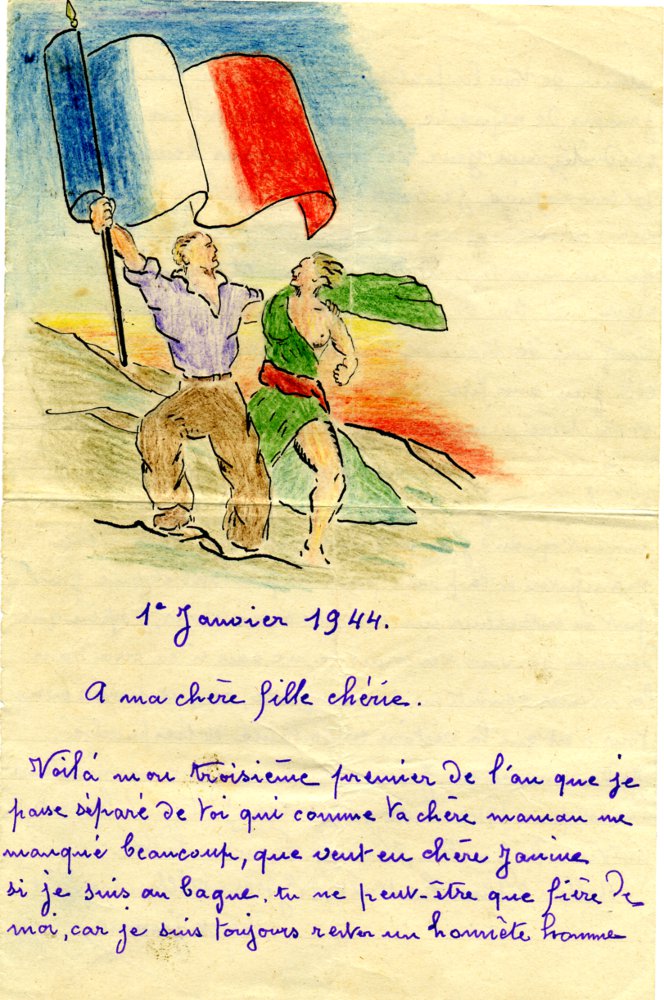 1e Janvier 1944.
A ma chère fille chérie.
Voilà mon troisième premier de l'an que je
passe séparé de toi qui comme ta chère maman me
manqué beaucoup, que veut en chère Janine
si je suis au bagne, tu ne peut-être que fière de
moi, car je suis toujours rester un honnète homme